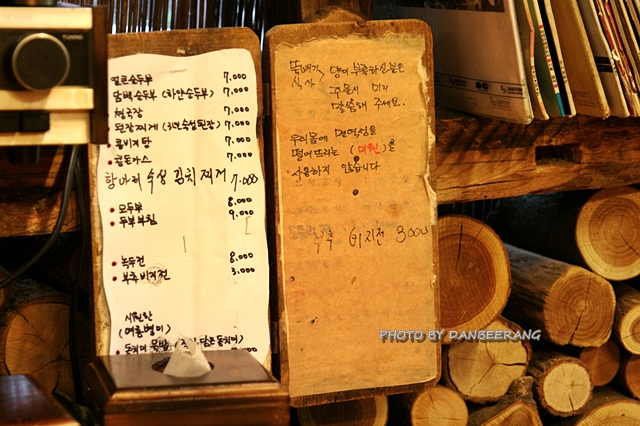 얼큰순두부 7,000
담백순두부 (하얀순두부) 7,000
청국장 7,000
된장찌개 (3년숙성된장) 7,000
콩비지탕 7,000
돈까스 7,000
항아리 숙성 김치찌개 7,000
모두부 8,000
두부부침 9,000
녹두전 8,000
부추비지전 3,000
시원한
(여름별미)
동치미
뚝배기 양이 부족하신분은
식사 주문시 미리
말씀해 주세요.
우리몸에 면역성을
떨어뜨리는 (미원)을
사용하지 않습니다
부추 비지전 3000
PHOTO BY DANBEERANG
TUNING